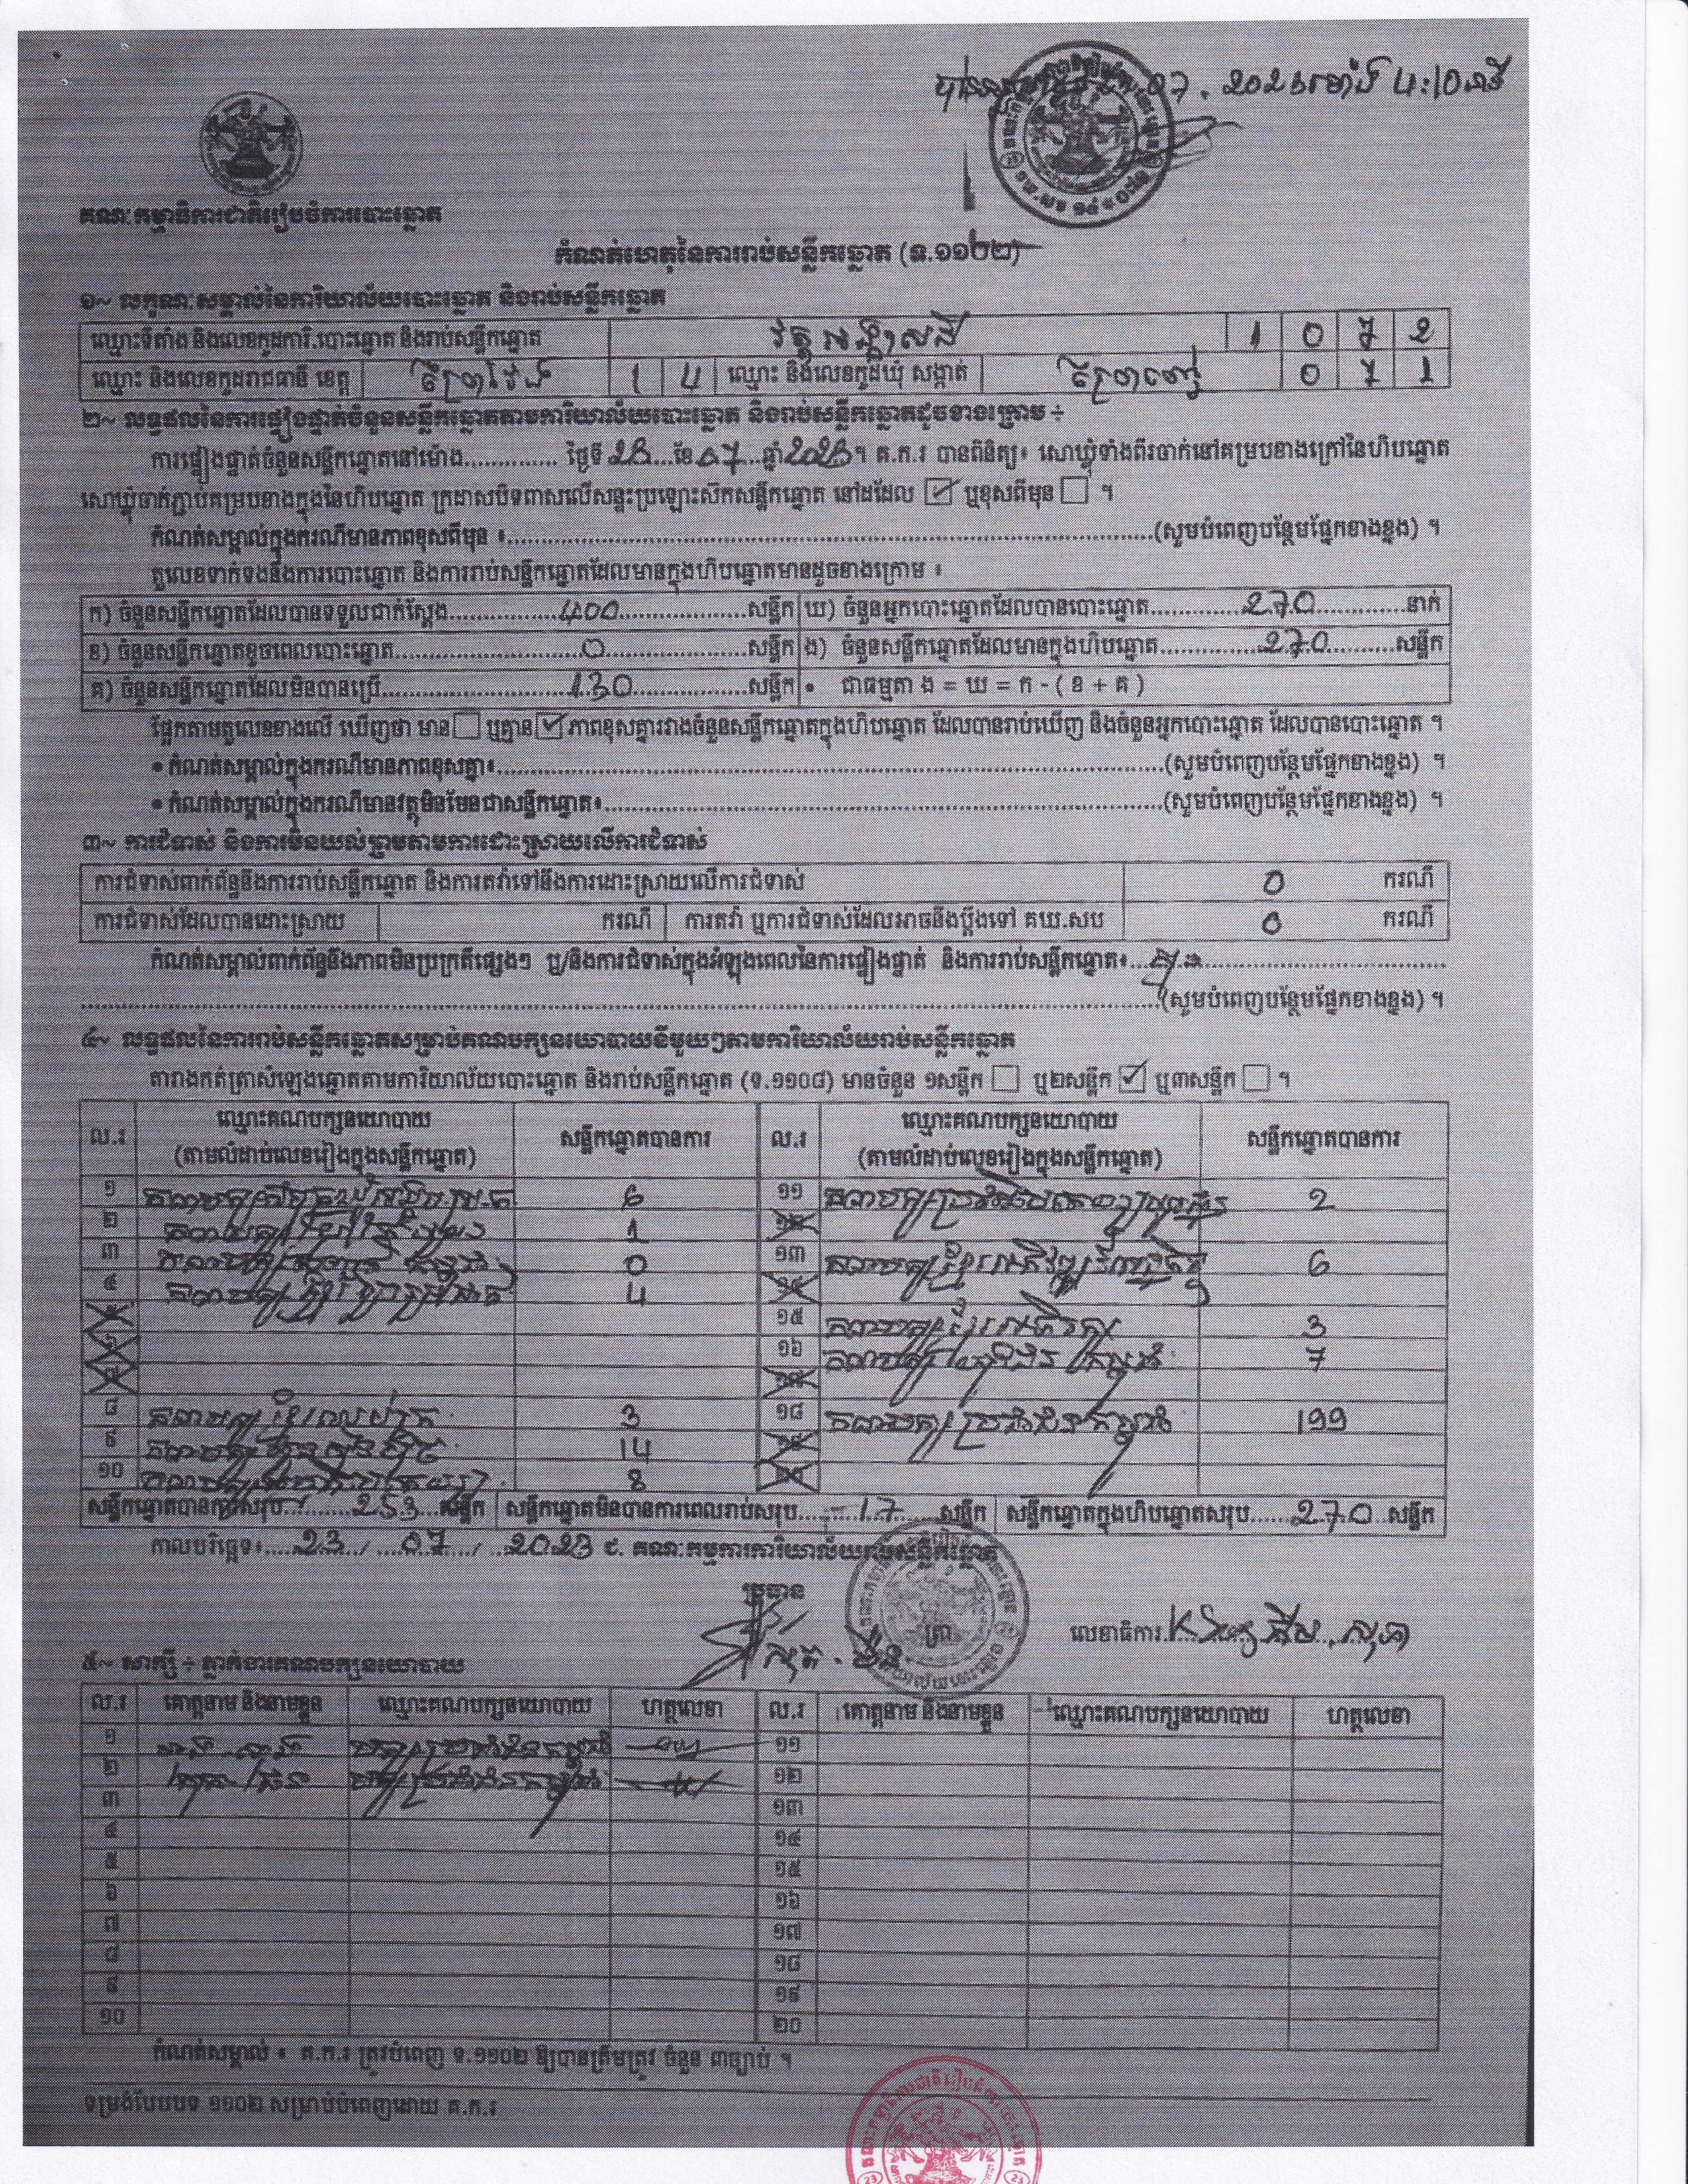 07. 2023 ម៉ោង 4:10 នាទី
គណៈកម្មាធិការជាតិរៀបចំការបោះឆ្នោត
កំណត់ហេតុនៃការរាប់សន្លឹកឆ្នោត (ទ.១១០២)
១~ លក្ខណៈសម្គាល់នៃការិយាល័យបោះឆ្នោត និងរាប់សន្លឹកឆ្នោត
ឈ្មោះទីតាំង និងលេខកូដការិ.បោះឆ្នោត និងរាប់សន្លឹកឆ្នោត វត្ត 1 0 7 2
ឈ្មោះ និងលេខកូដរាជធានី ខេត្ត ព្រៃវែង 1 4 ឈ្មោះ និងលេខកូដឃុំ សង្កាត់ 0 7 1
២~ លទ្ធផលនៃការផ្ទៀងផ្ទាត់ចំនួនសន្លឹកឆ្នោតតាមការិយាល័យបោះឆ្នោត និងរាប់សន្លឹកឆ្នោតដូចខាងក្រោម ÷
ការផ្ទៀងផ្ទាត់ចំនួនសន្លឹកឆ្នោតនៅម៉ោង.............. ថ្ងៃទី 23 ខែ 07 ឆ្នាំ 2023 ។ គ.ក.រ បានពិនិត្យ៖ សោឃ្លុំទាំងពីរចាក់នៅគម្របខាងក្រៅនៃហិបឆ្នោត
សោឃ្លុំចាក់ភ្ជាប់គម្របខាងក្នុងនៃហិបឆ្នោត ក្រដាសបិទពាសលើសន្ទះប្រឡោះស៊កសន្លឹកឆ្នោត នៅដដែល ☑ ឬខុសពីមុន ☐ ។
កំណត់សម្គាល់ក្នុងករណីមានភាពខុសពីមុន ៖..............(សូមបំពេញបន្ថែមផ្នែកខាងខ្នង) ។
តួលេខទាក់ទងនឹងការបោះឆ្នោត និងការរាប់សន្លឹកឆ្នោតដែលមានក្នុងហិបឆ្នោតមានដូចខាងក្រោម ៖
ក) ចំនួនសន្លឹកឆ្នោតដែលបានទទួលជាក់ស្តែង 400 សន្លឹក ឃ) ចំនួនអ្នកបោះឆ្នោតដែលបានបោះឆ្នោត 270 នាក់
ខ) ចំនួនសន្លឹកឆ្នោតខូចពេលបោះឆ្នោត 0 សន្លឹក ង) ចំនួនសន្លឹកឆ្នោតដែលមានក្នុងហិបឆ្នោត 270 សន្លឹក
គ) ចំនួនសន្លឹកឆ្នោតដែលមិនបានប្រើ 130 សន្លឹក • ជាធម្មតា ង = ឃ = ក - ( ខ + គ )
ផ្អែកតាមតួលេខខាងលើ ឃើញថា មាន ☐ ឬគ្មាន ☑ ភាពខុសគ្នារវាងចំនួនសន្លឹកឆ្នោតក្នុងហិបឆ្នោត ដែលបានរាប់ឃើញ និងចំនួនអ្នកបោះឆ្នោត ដែលបានបោះឆ្នោត ។
• កំណត់សម្គាល់ក្នុងករណីមានភាពខុសគ្នា៖..............(សូមបំពេញបន្ថែមផ្នែកខាងខ្នង) ។
• កំណត់សម្គាល់ក្នុងករណីមានវត្ថុមិនមែនជាសន្លឹកឆ្នោត៖..............(សូមបំពេញបន្ថែមផ្នែកខាងខ្នង) ។
៣~ ការជំទាស់ និងការមិនយល់ព្រមតាមការដោះស្រាយលើការជំទាស់
ការជំទាស់ពាក់ព័ន្ធនឹងការរាប់សន្លឹកឆ្នោត និងការតវ៉ាទៅនឹងការដោះស្រាយលើការជំទាស់ 0 ករណី
ការជំទាស់ដែលបានដោះស្រាយ ករណី ការតវ៉ា ឬការជំទាស់ដែលអាចនឹងប្តឹងទៅ គឃ.សប 0 ករណី
កំណត់សម្គាល់ពាក់ព័ន្ធនឹងភាពមិនប្រក្រតីផ្សេងៗ ឬ/និងការជំទាស់ក្នុងអំឡុងពេលនៃការផ្ទៀងផ្ទាត់ និងការរាប់សន្លឹកឆ្នោត៖
..............(សូមបំពេញបន្ថែមផ្នែកខាងខ្នង) ។
៤~ លទ្ធផលនៃការរាប់សន្លឹកឆ្នោតសម្រាប់គណបក្សនយោបាយនីមួយៗតាមការិយាល័យរាប់សន្លឹកឆ្នោត
តារាងកត់ត្រាសំឡេងឆ្នោតតាមការិយាល័យបោះឆ្នោត និងរាប់សន្លឹកឆ្នោត (ទ.១១០៨) មានចំនួន ១សន្លឹក ☐ ឬ២សន្លឹក ☑ ឬ៣សន្លឹក ☐ ។
ល.រ ឈ្មោះគណបក្សនយោបាយ (តាមលំដាប់លេខរៀងក្នុងសន្លឹកឆ្នោត) សន្លឹកឆ្នោតបានការ ល.រ ឈ្មោះគណបក្សនយោបាយ (តាមលំដាប់លេខរៀងក្នុងសន្លឹកឆ្នោត) សន្លឹកឆ្នោតបានការ
១ គណបក្ស 6 ១១ គណបក្ស 2
២ គណបក្ស 1 ១២
៣ គណបក្ស 0 ១៣ គណបក្ស ខ្មែរអភិវឌ្ឍន៍សេដ្ឋកិច្ច 6
៤ គណបក្ស 4 ១៤
៥ ១៥ គណបក្ស 3
៦ ១៦ គណបក្ស 7
៧ ១៧
៨ គណបក្ស 3 ១៨ គណបក្ស ប្រជាជនកម្ពុជា 199
៩ គណបក្ស ហ៊្វុនស៊ិនប៉ិច 14 ១៩
១០ គណបក្ស 8 ២០
សន្លឹកឆ្នោតបានការសរុប 253 សន្លឹក សន្លឹកឆ្នោតមិនបានការពេលរាប់សរុប 17 សន្លឹក សន្លឹកឆ្នោតក្នុងហិបឆ្នោតសរុប 270 សន្លឹក
កាលបរិច្ឆេទ៖ 23 / 07 / 2023 ៩. គណៈកម្មការការិយាល័យរាប់សន្លឹកឆ្នោត
ប្រធាន ត្រា លេខាធិការ
៥~ សាក្សី ÷ ភ្នាក់ងារគណបក្សនយោបាយ
ល.រ គោត្តនាម និងនាមខ្លួន ឈ្មោះគណបក្សនយោបាយ ហត្ថលេខា ល.រ គោត្តនាម និងនាមខ្លួន ឈ្មោះគណបក្សនយោបាយ ហត្ថលេខា
១ បក្សប្រជាជនកម្ពុជា ១១
២ បក្សប្រជាជនកម្ពុជា ១២
៣ ១៣
៤ ១៤
៥ ១៥
៦ ១៦
៧ ១៧
៨ ១៨
៩ ១៩
១០ ២០
កំណត់សម្គាល់ ៖ គ.ក.រ ត្រូវបំពេញ ទ.១១០២ ឱ្យបានត្រឹមត្រូវ ចំនួន ៣ច្បាប់ ។
ទម្រង់បែបបទ ១១០២ សម្រាប់បំពេញដោយ គ.ក.រ